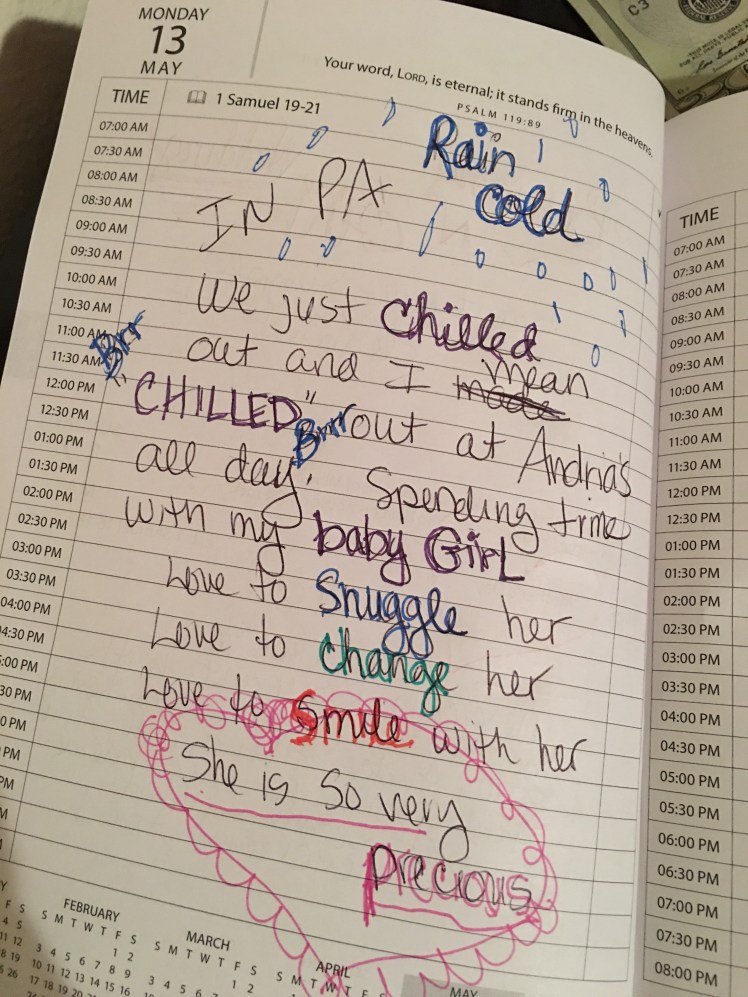 MONDAY
13
MAY
Your word, LORD, is eternal; it stands firm in the heavens.
PSALM 119:89
TIME
1 Samuel 19-21
07:00 AM
07:30 AM
08:00 AM
08:30 AM
09:00 AM
09:30 AM
10:00 AM
10:30 AM
11:00 AM
11:30 AM
12:00 PM
12:30 PM
01:00 PM
01:30 PM
02:00 PM
02:30 PM
03:00 PM
03:30 PM
04:00 PM
4:30 PM
:00 PM
30 PM
0 PM
PM
PM
M
Rain
IN PA Cold
We just Chilled
out and I mean
Brr
"CHILLED" Brrr out at Andria's
all day. Spending time
with my baby GIRL
Love to Snuggle her
Love to change her
Love to Smile with her
She is so very
precious
FEBRUARY
S M T W T F S
1 2
3 4 5 6 7 8 9
10 11 12 13 14 15 16
17 18 19 20 21
MARCH
S M T W T F S
1 2
3 4 5 6 7 8
APRIL
S M T W T F S
MAY
F S
4 5
11 12
18 19
25 26
TIME
07:00 AM
07:30 AM
08:00 AM
08:30 AM
09:00 AM
09:30 AM
10:00 AM
10:30 AM
11:00 AM
11:30 AM
12:00 PM
12:30 PM
01:00 PM
01:30 PM
02:00 PM
02:30 PM
03:00 PM
03:30 PM
04:00 PM
04:30 PM
05:00 PM
05:30 PM
06:00 PM
06:30 PM
07:00 PM
07:30 PM
08:00 PM
C3